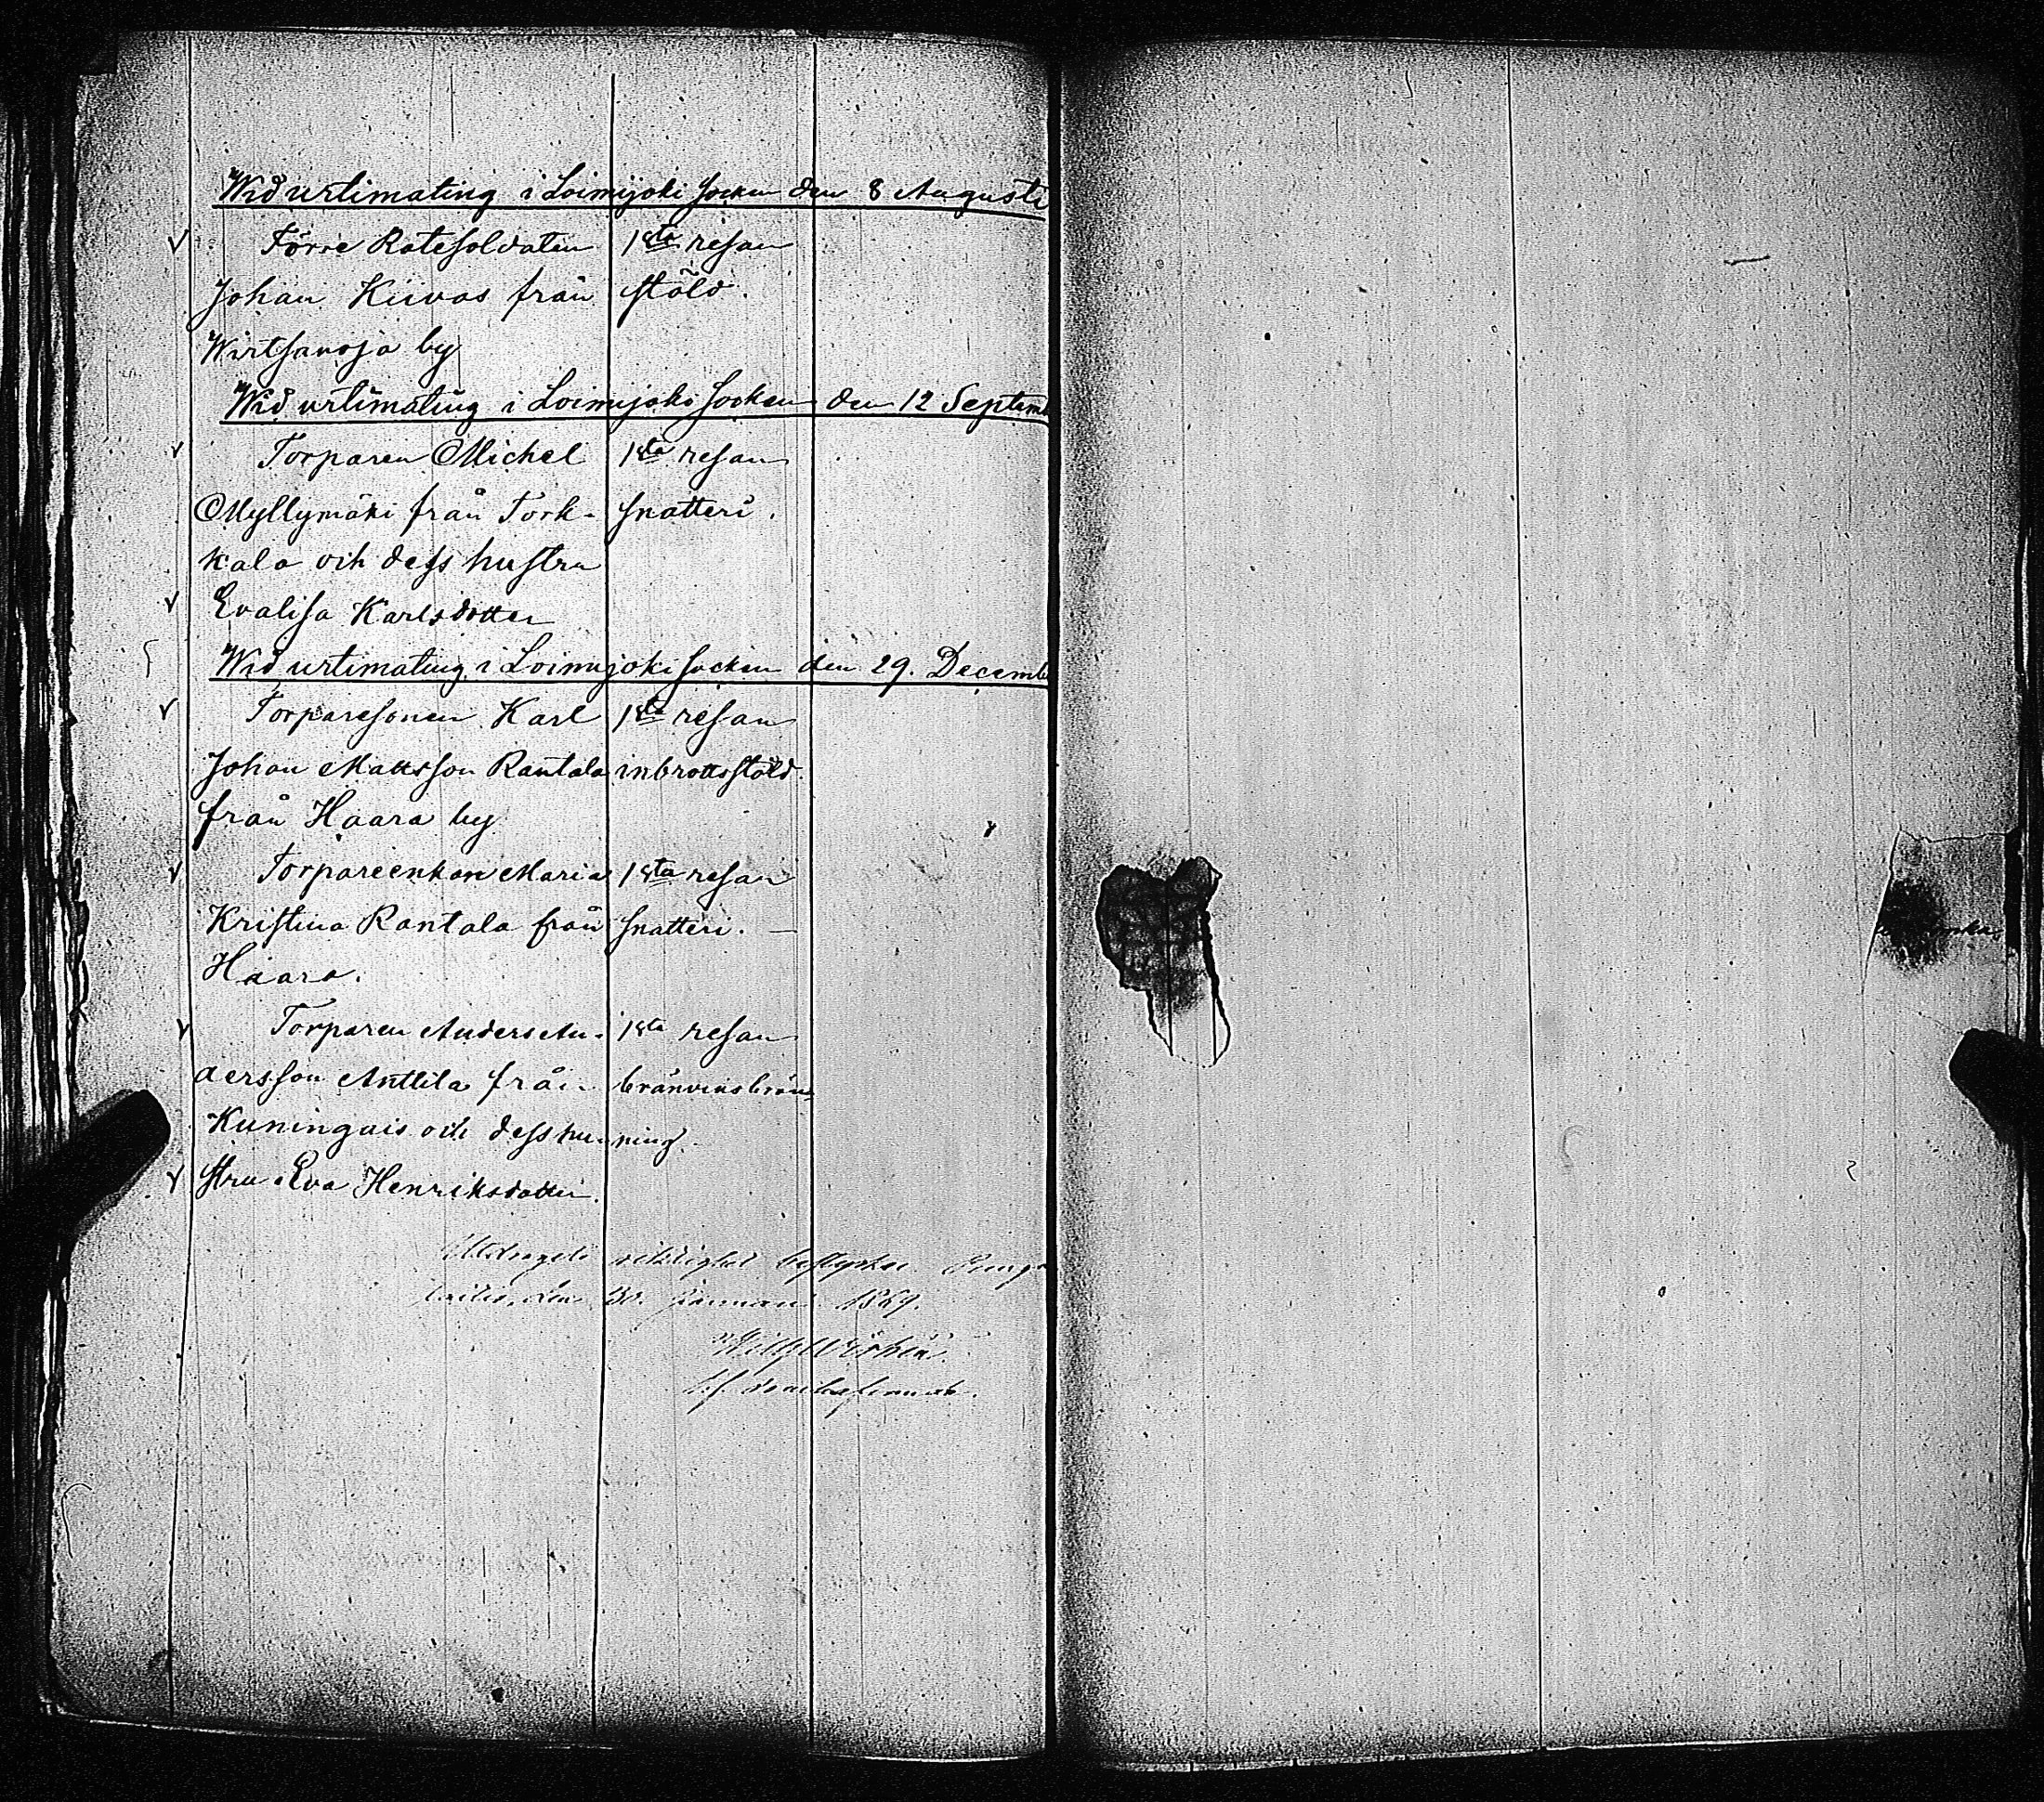 Wid urtimating i Loimijoki socken den 8 Augusti
Förre Rotesoldaten 1sta resan
Johan Kiivas från stöld.
Wirtsanoja by
Wid urtimating i Loimijoki socken den 12 Septemb
Torparen Michel 1sta resan
Myllymäki från Tork- snatteri.
kala och dess hustru
Evalisa Karlsdotter
Wid urtimating i Loimijoki socken den 29. Decemb
Torparesonen Karl 1sta resan
Johan Mattsson Rantala inbrottsstöld.
från Haara by
Torpareenkan Maria 1sta resan
Kristina Rantala från snatteri.
Haara.
Torparen Anders An- 1sta resan
dersson Anttila från bränvinsbrän-
Kuningais och dess hu- ning.
stru Eva Henriksdotter.
Utdragets riktighet bestyrker. Punga
laitio, den 30. Januari 1869.